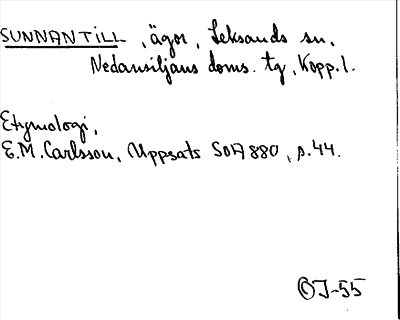 SUNNANTILL, ägor, Leksands sn,
Nedansiljans doms. tg, Kopp. l.
Etymologi,
E.M. Carlsson, Uppsats SOA 880, s. 44.
J-55